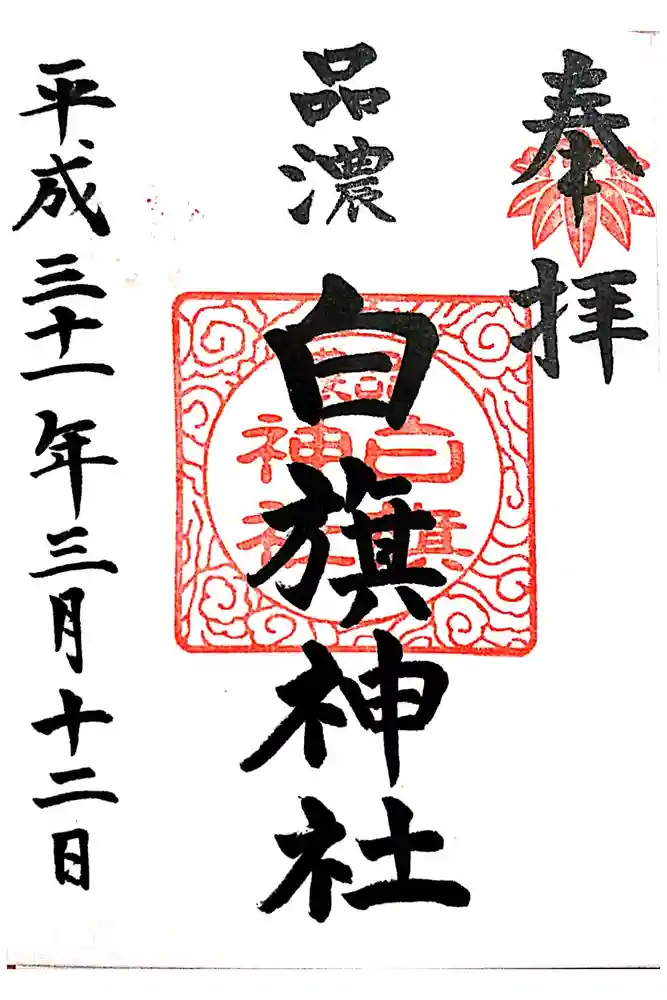 奉拝
品濃
白旗神社
品濃
白旗
神社
平成三十一年三月十二日